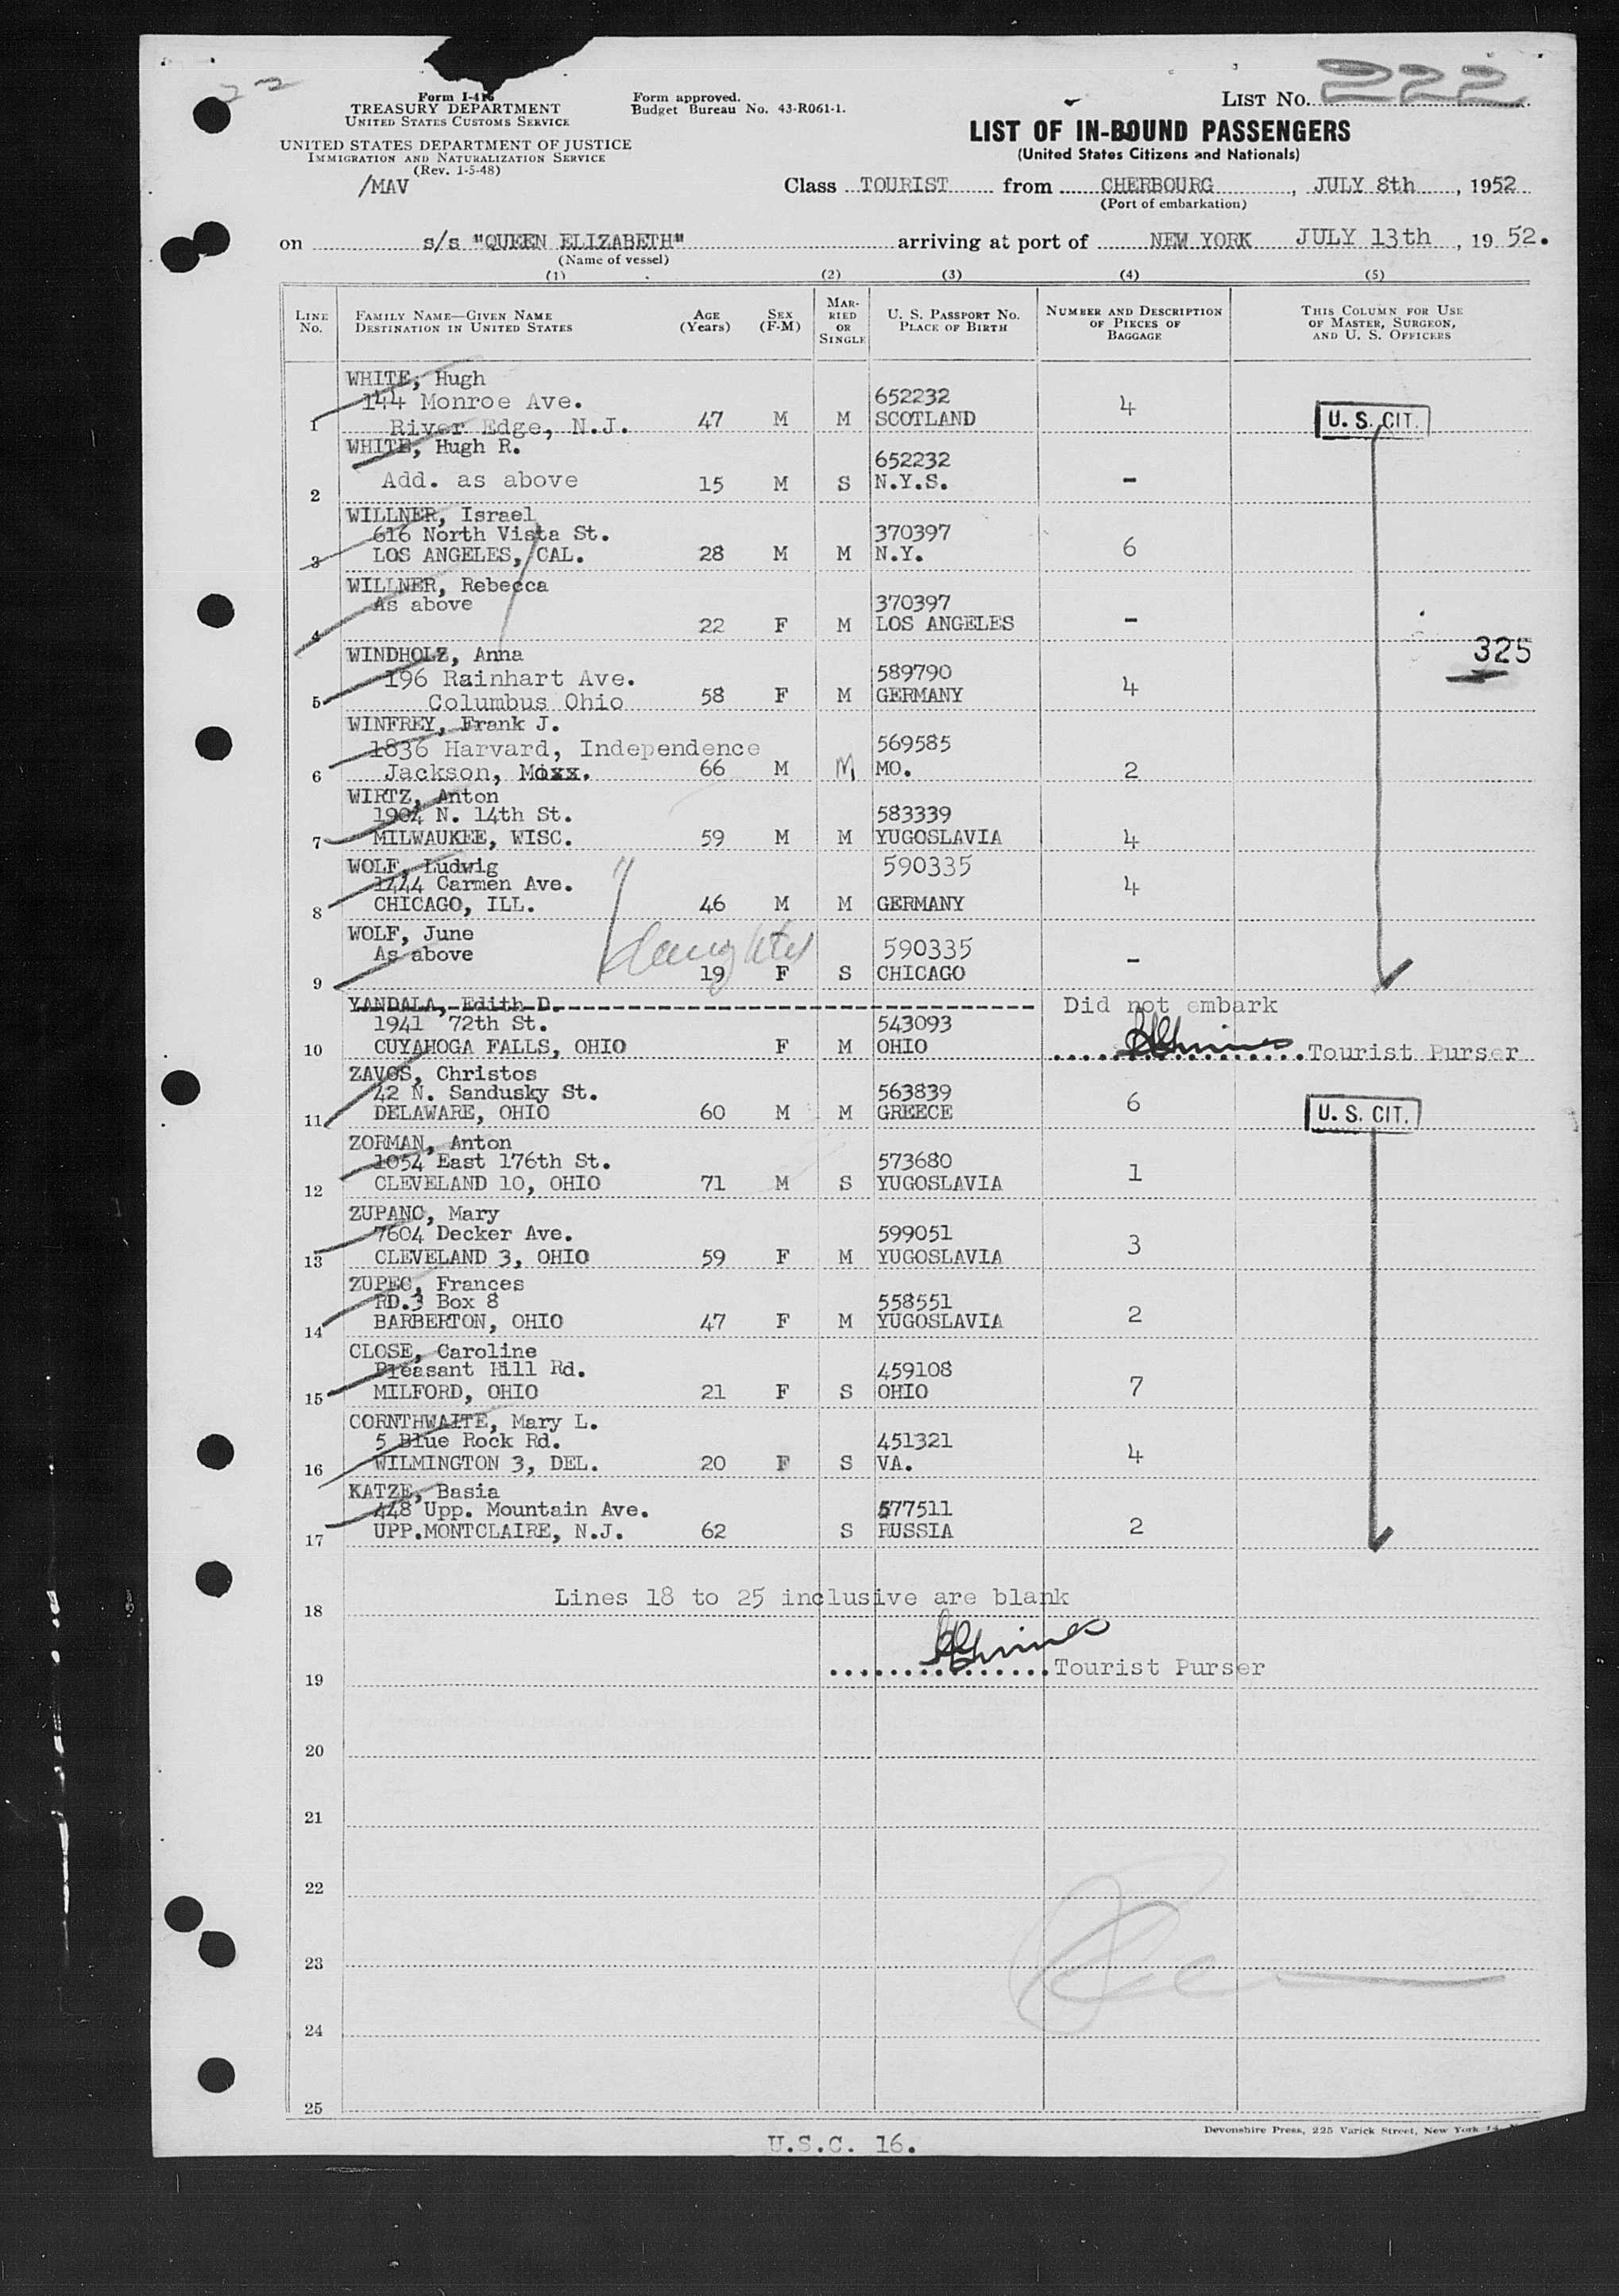 22
Form I-416
TREASURY DEPARTMENT
UNITED STATES CUSTOMS SERVICE
UNITED STATES DEPARTMENT OF JUSTICE
IMMIGRATION AND NATURALIZATION SERVICE
(Rev. 1-5-48)
/MAV
Form approved.
Budget Bureau No. 43-R061-1.
LIST No. 222
LIST OF IN-BOUND PASSENGERS
(United States Citizens and Nationals)
Class TOURIST from CHERBOURG, JULY 8th, 1952
(Port of embarkation)
on s/s "QUEEN ELIZABETH" arriving at port of NEW YORK JULY 13th, 19 52.
(Name of vessel)
(1) (2) (3) (4) (5)
LINE No. FAMILY NAME—GIVEN NAME DESTINATION IN UNITED STATES AGE (Years) SEX (F-M) MARRIED OR SINGLE U. S. PASSPORT No. PLACE OF BIRTH NUMBER AND DESCRIPTION OF PIECES OF BAGGAGE THIS COLUMN FOR USE OF MASTER, SURGEON, AND U. S. OFFICERS
WHITE, Hugh
144 Monroe Ave. 652232 4
1 River Edge, N.J. 47 M M SCOTLAND U. S. CIT.
WHITE, Hugh R. 652232
2 Add. as above 15 M S N.Y.S. -
WILLNER, Israel
616 North Vista St. 370397
3 LOS ANGELES, CAL. 28 M M N.Y. 6
WILLNER, Rebecca
As above 370397
4 22 F M LOS ANGELES -
WINDHOLZ, Anna 325
196 Rainhart Ave. 589790
5 Columbus Ohio 58 F M GERMANY 4
WINFREY, Frank J.
1836 Harvard, Independence 569585
6 Jackson, Moxx. 66 M M MO. 2
WIRTZ, Anton
1904 N. 14th St. 583339
7 MILWAUKEE, WISC. 59 M M YUGOSLAVIA 4
WOLF, Ludwig 590335
1444 Carmen Ave. 4
8 CHICAGO, ILL. 46 M M GERMANY
WOLF, June
As above daughter 590335
9 19 F S CHICAGO -
YANDALA, Edith D. Did not embark
1941 72th St. 543093
10 CUYAHOGA FALLS, OHIO F M OHIO Tourist Purser
ZAVOS, Christos
42 N. Sandusky St. 563839
11 DELAWARE, OHIO 60 M M GREECE 6 U. S. CIT.
ZORMAN, Anton
1054 East 176th St. 573680
12 CLEVELAND 10, OHIO 71 M S YUGOSLAVIA 1
ZUPANC, Mary
7604 Decker Ave. 599051
13 CLEVELAND 3, OHIO 59 F M YUGOSLAVIA 3
ZUPEC, Frances
RD.3 Box 8 558551
14 BARBERTON, OHIO 47 F M YUGOSLAVIA 2
CLOSE, Caroline
Pleasant Hill Rd. 459108
15 MILFORD, OHIO 21 F S OHIO 7
CORNTHWAITE, Mary L.
5 Blue Rock Rd. 451321
16 WILMINGTON 3, DEL. 20 F S VA. 4
KATZE, Basia
448 Upp. Mountain Ave. 577511
17 UPP.MONTCLAIRE, N.J. 62 S RUSSIA 2
Lines 18 to 25 inclusive are blank
18
Tourist Purser
19
20
21
22
23
24
25
Devonshire Press, 225 Varick Street, New York 14
U.S.C. 16.